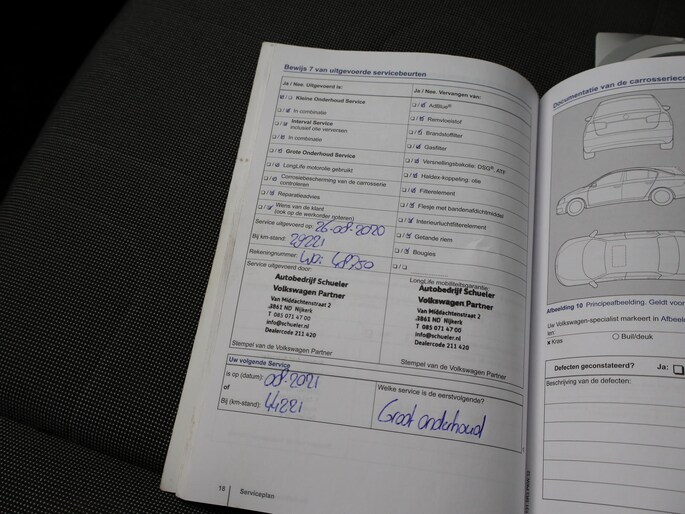 Bewijs 7 van uitgevoerde servicebeurten
Ja / Nee. Uitgevoerd is:
Kleine Onderhoud Service
In combinatie
Interval Service
Inclusief olie verversen
In combinatie
Grote Onderhoud Service
LongLife motorolie gebruikt
Corrosiebescherming van de carrosserie
controleren
Reparatieadvies
Wens van de klant
(ook op de werkorder noteren)
Service uitgevoerd op: 26-08-2020
Bij km-stand: 29221
Rekeningnummer: wo: 48750
Service uitgevoerd door:
Autobedrijf Schueler
Volkswagen Partner
Van Middachtenstraat 2
3861 ND Nijkerk
T 085 071 47 00
info@schueler.nl
Dealercode 211 420
Stempel van de Volkswagen Partner
Ja / Nee. Vervangen van:
AdBlue®
Remvloeistof
Brandstoffilter
Gasfilter
Versnellingsbakolie: DSG®, ATF
Haldex-koppeling: olie
Filterelement
Flesje met bandenafdichtmiddel
Interieurluchtfilterelement
Getande riem
Bougies
LongLife mobiliteitsgarantie:
Autobedrijf Schueler
Volkswagen Partner
Van Middachtenstraat 2
3861 ND Nijkerk
T 085 071 47 00
info@schueler.nl
Dealercode 211 420
Stempel van de Volkswagen Partner
Uw volgende Service
is op (datum): 08-2021
of
Bij (km-stand): 44221
Welke service is de eerstvolgende?
Groot onderhoud
18 Serviceplan
Documentatie van de carrosseriec
Afbeelding 10 Principeafbeelding. Geldt voor
Uw Volkswagen-specialist markeert in Afbeelding
ten:
× Kras
O Buil/deuk
Defecten geconstateerd? Ja:
Beschrijving van de defecten: